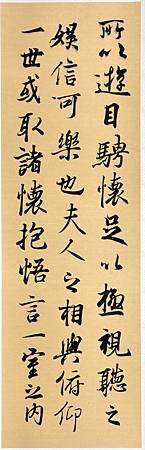 所以遊目騁懷足以極視聽之
娛信可樂也夫人之相與俯仰
一世或取諸懷抱悟言一室之內